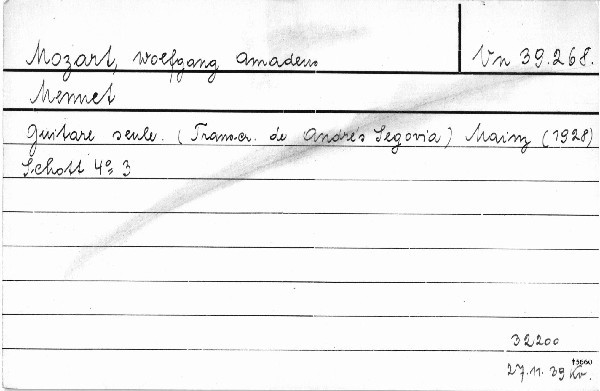 Mozart, Wolfgang Amadeus
Vn 39.268.
Menuet
Guitare seule. (Transcr. de Andrés Segovia) Mainz (1928)
Schott 4º 3
32200
27.11.39 Kv.